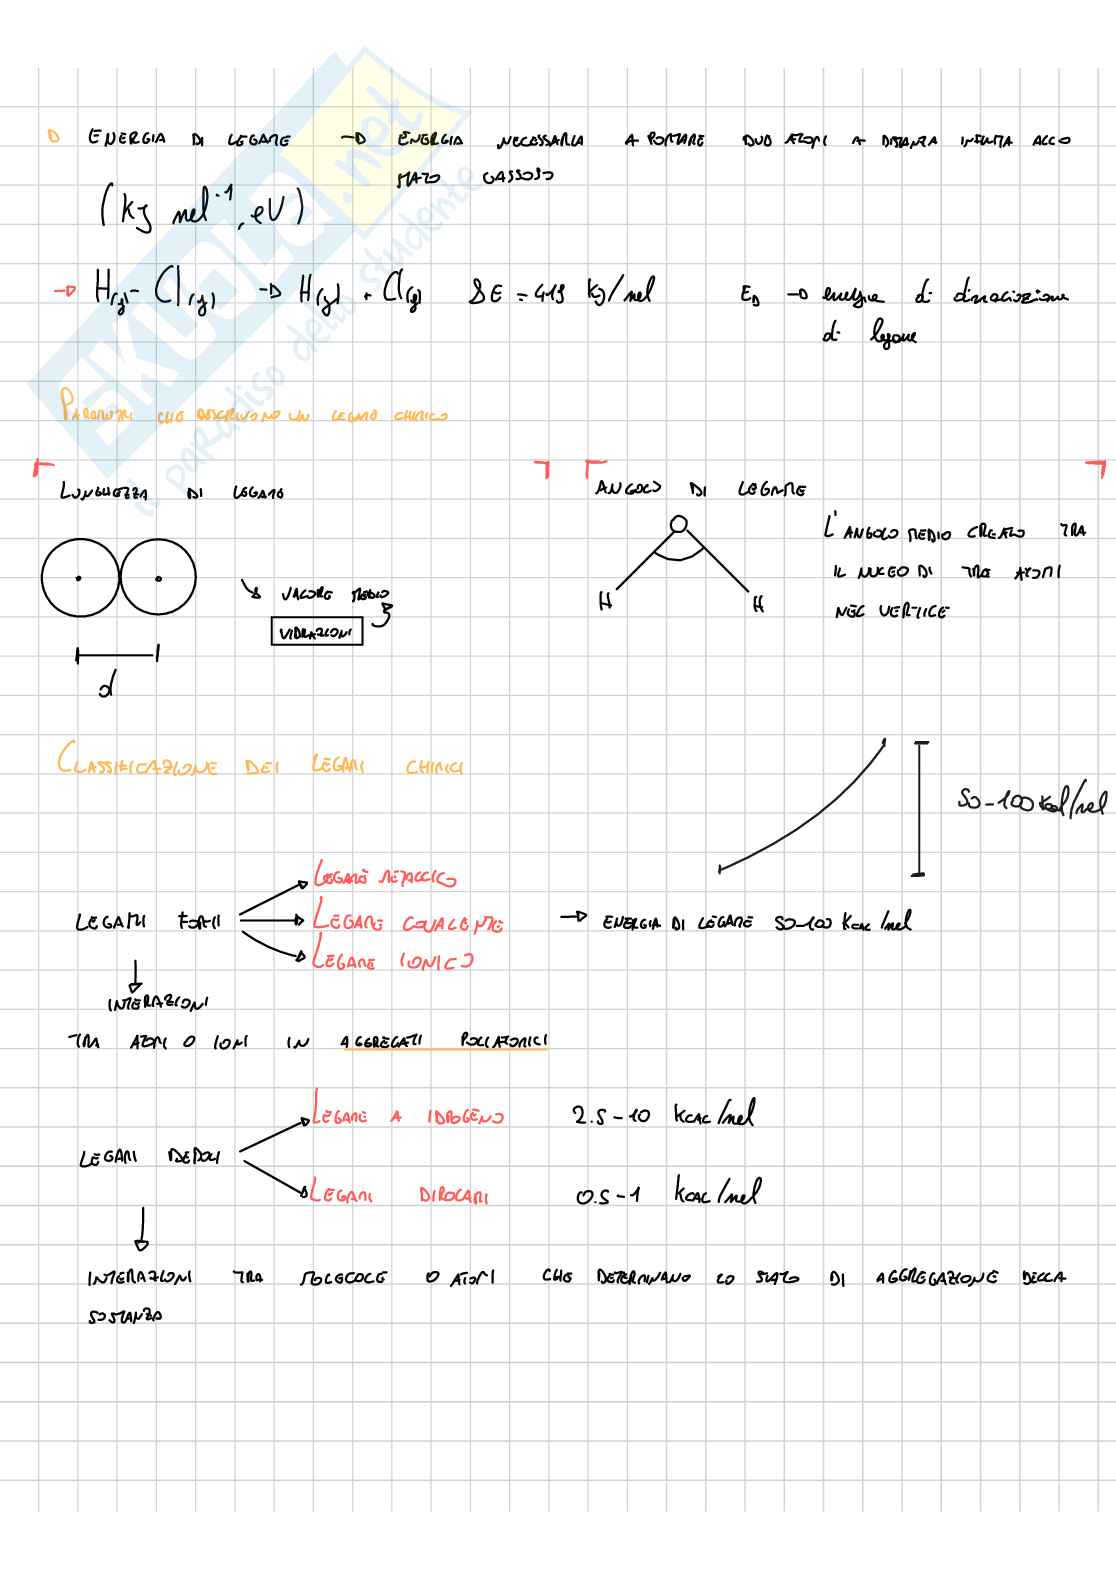 ENERGIA DI LEGAME → ENERGIA NECESSARIA A PORTARE DUO ATOMI A DISTANZA INFINITA ALLO
STATO GASSOSO
(KJ mol⁻¹, eV)
→ H(g) - Cl(g) → H(g) + Cl(g) ΔE = 419 KJ/mol E_D → energia di dissociazione
di legame
PARAMETRI CHE DESCRIVONO UN LEGAME CHIMICO
LUNGHEZZA DI LEGAME
ANGOLO DI LEGAME
L'ANGOLO MEDIO CREATO TRA
IL NUCLEO DI TRE ATOMI
NEL VERTICE
VALORE MEDIO
VIBRAZIONI
H H
d
CLASSIFICAZIONE DEI LEGAMI CHIMICI
50-100 Kcal/mol
LEGAMI FORTI
LEGAME METALLICO
LEGAME COVALENTE
LEGAME IONICO
→ ENERGIA DI LEGAME 50-100 Kcal/mol
INTERAZIONI
TRA ATOMI O IONI IN AGGREGATI POLIATOMICI
LEGAME A IDROGENO 2.5-10 Kcal/mol
LEGAMI DEBOLI
LEGAMI DIPOLARI 0.5-1 Kcal/mol
INTERAZIONI TRA MOLECOLE O ATOMI CHE DETERMINANO LO STATO DI AGGREGAZIONE DELLA
SOSTANZA
skuola.net
il paradiso dello studente